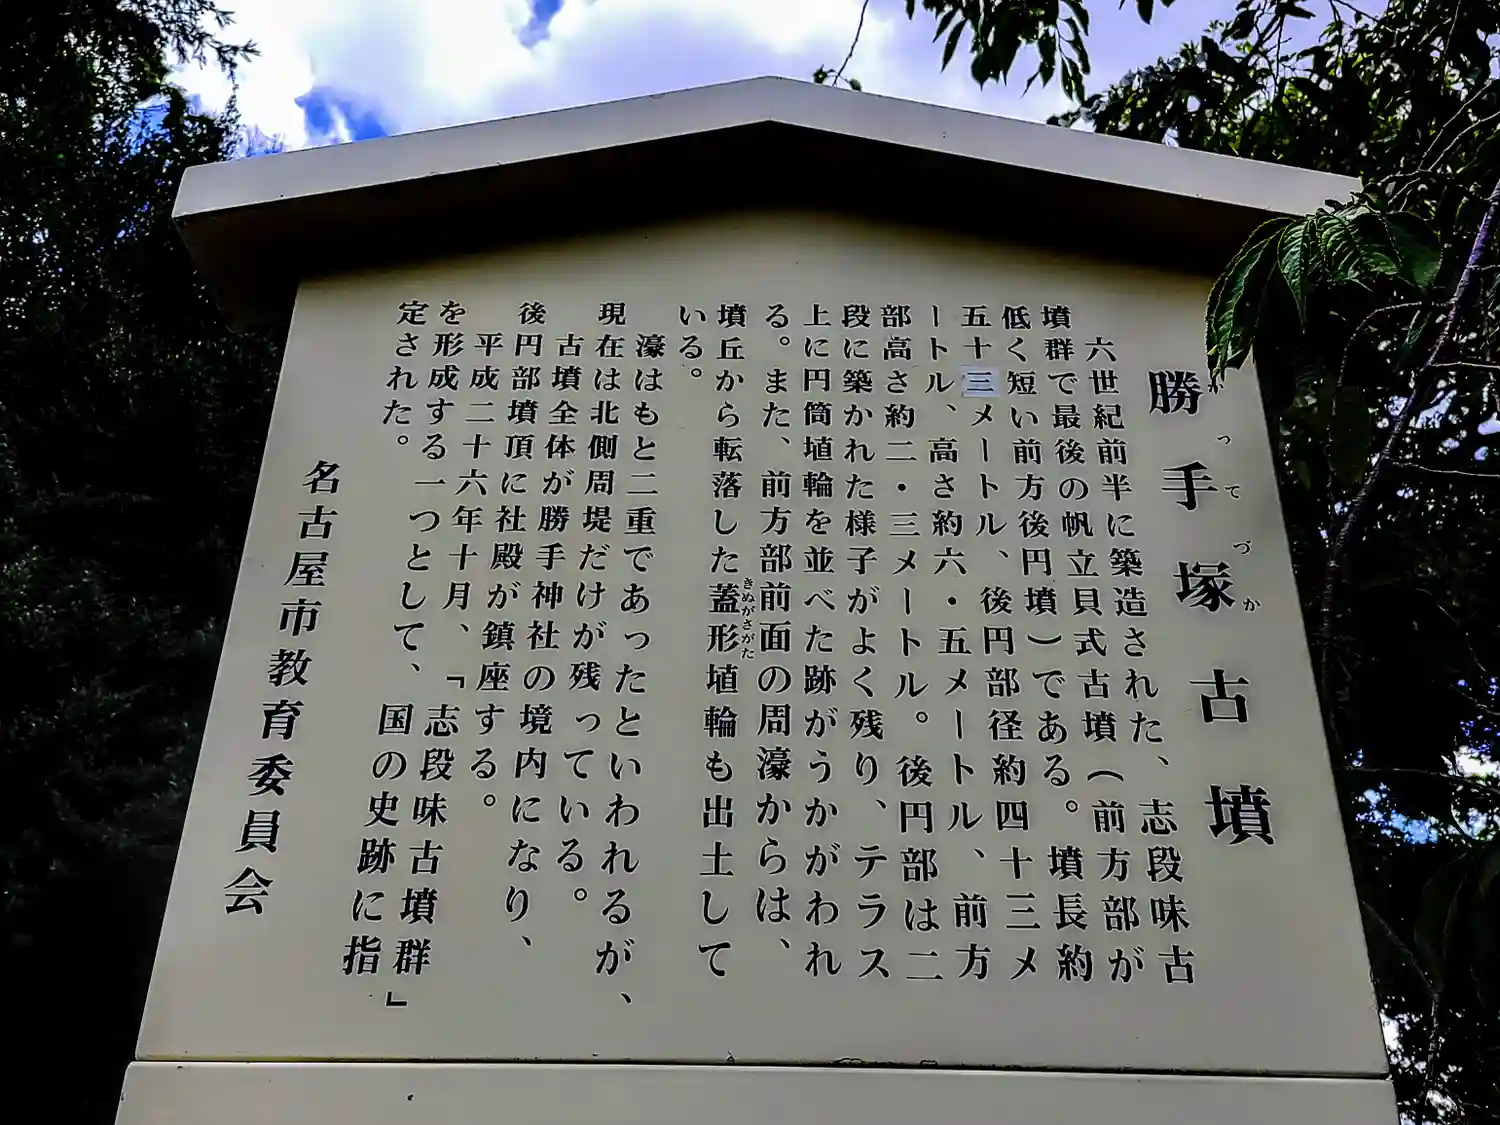 勝手塚古墳
かってづか
六世紀前半に築造された、志段味古
墳群で最後の帆立貝式古墳（前方部が
低く短い前方後円墳）である。墳長約
五十三メートル、後円部径約四十三メ
ートル、高さ約六・五メートル、前方
部高さ約二・三メートル。後円部は二
段に築かれた様子がよく残り、テラス
上に円筒埴輪を並べた跡がうかがわれ
る。また、前方部前面の周濠からは、
墳丘から転落した蓋形埴輪も出土して
きぬがさがた
いる。
濠はもと二重であったといわれるが、
現在は北側周堤だけが残っている。
古墳全体が勝手神社の境内になり、
後円部墳頂に社殿が鎮座する。
平成二十六年十月、「志段味古墳群」
を形成する一つとして、国の史跡に指
定された。
名古屋市教育委員会